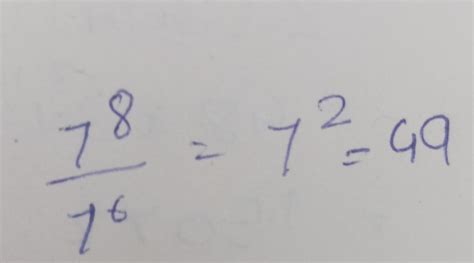 7⁸/7⁶ = 7² = 49